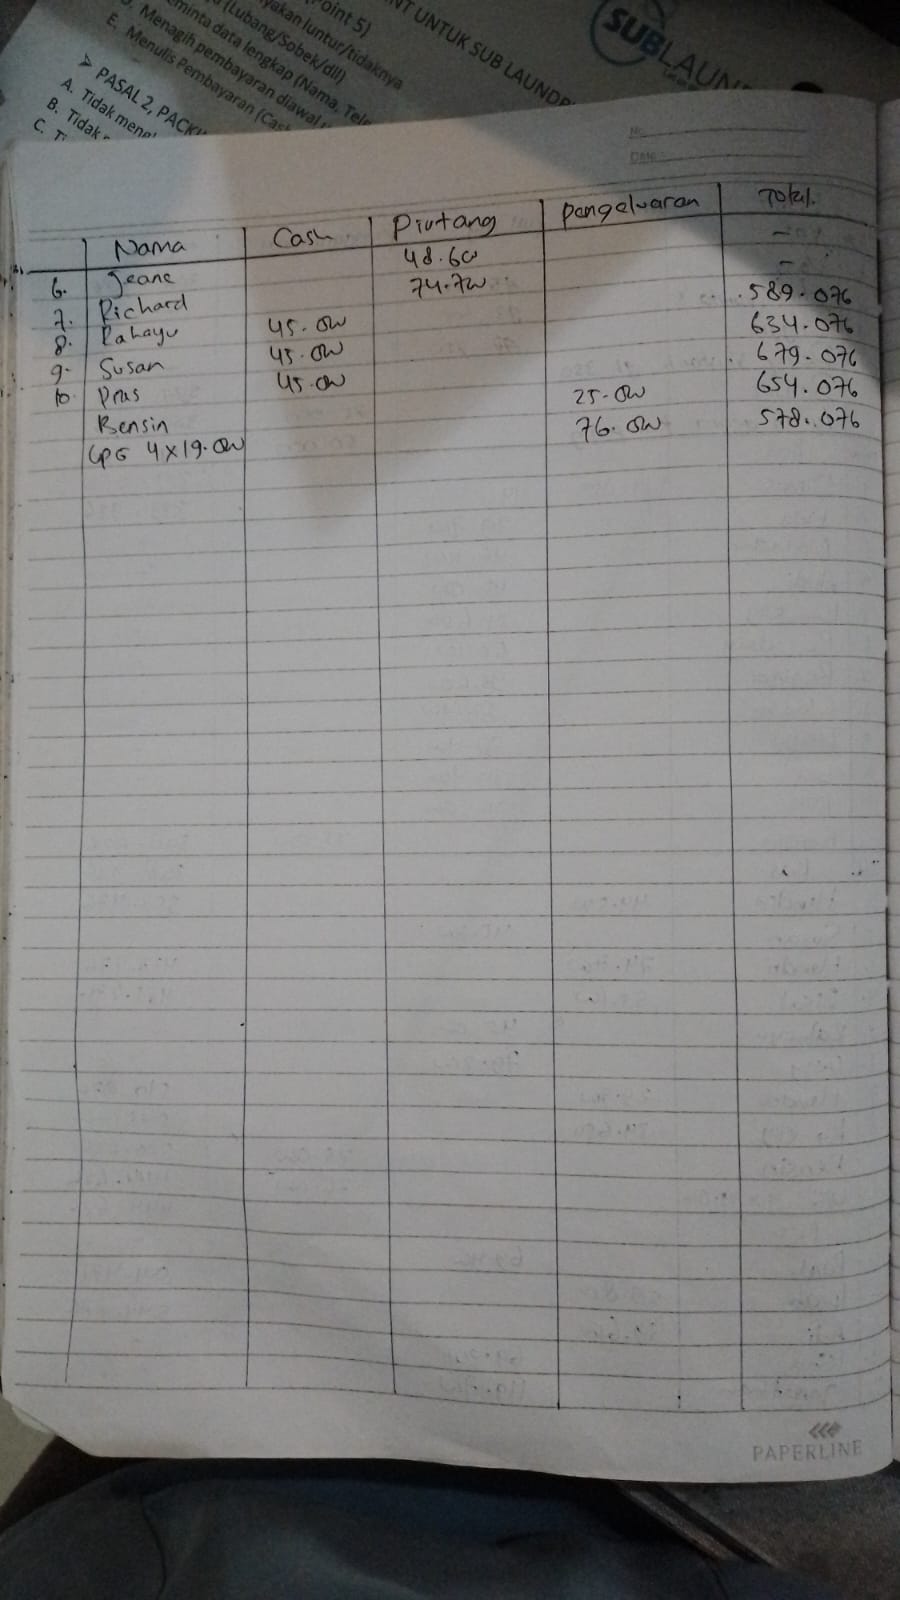 NT UNTUK SUB LAUNDR
SUBLAUN
Point 5)
yakan luntur/tidaknya
(Lubang/Sobek/dll)
minta data lengkap (Nama, Tele
D. Menagih pembayaran diawal
E. Menulis Pembayaran (Cas
➢ PASAL 2, PACKI
A. Tidak meng
B. Tidak
C.
No.
Date :
Nama Cash Piutang pengeluaran Total.
6. Jeane 48.600 -
7. Richard 74.700 -
8. Rahayu 45.000 589.076
9. Susan 45.000 634.076
10. Pras 45.000 679.076
Bensin 25.000 654.076
LPG 4x19.000 76.000 578.076
PAPERLINE